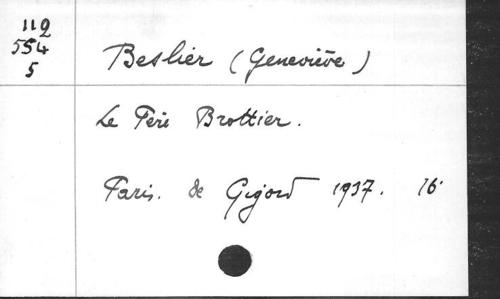 112
554
5
Beslier (Geneviève)
Le Père Brottier.
Paris. de Gigord 1937. 16°